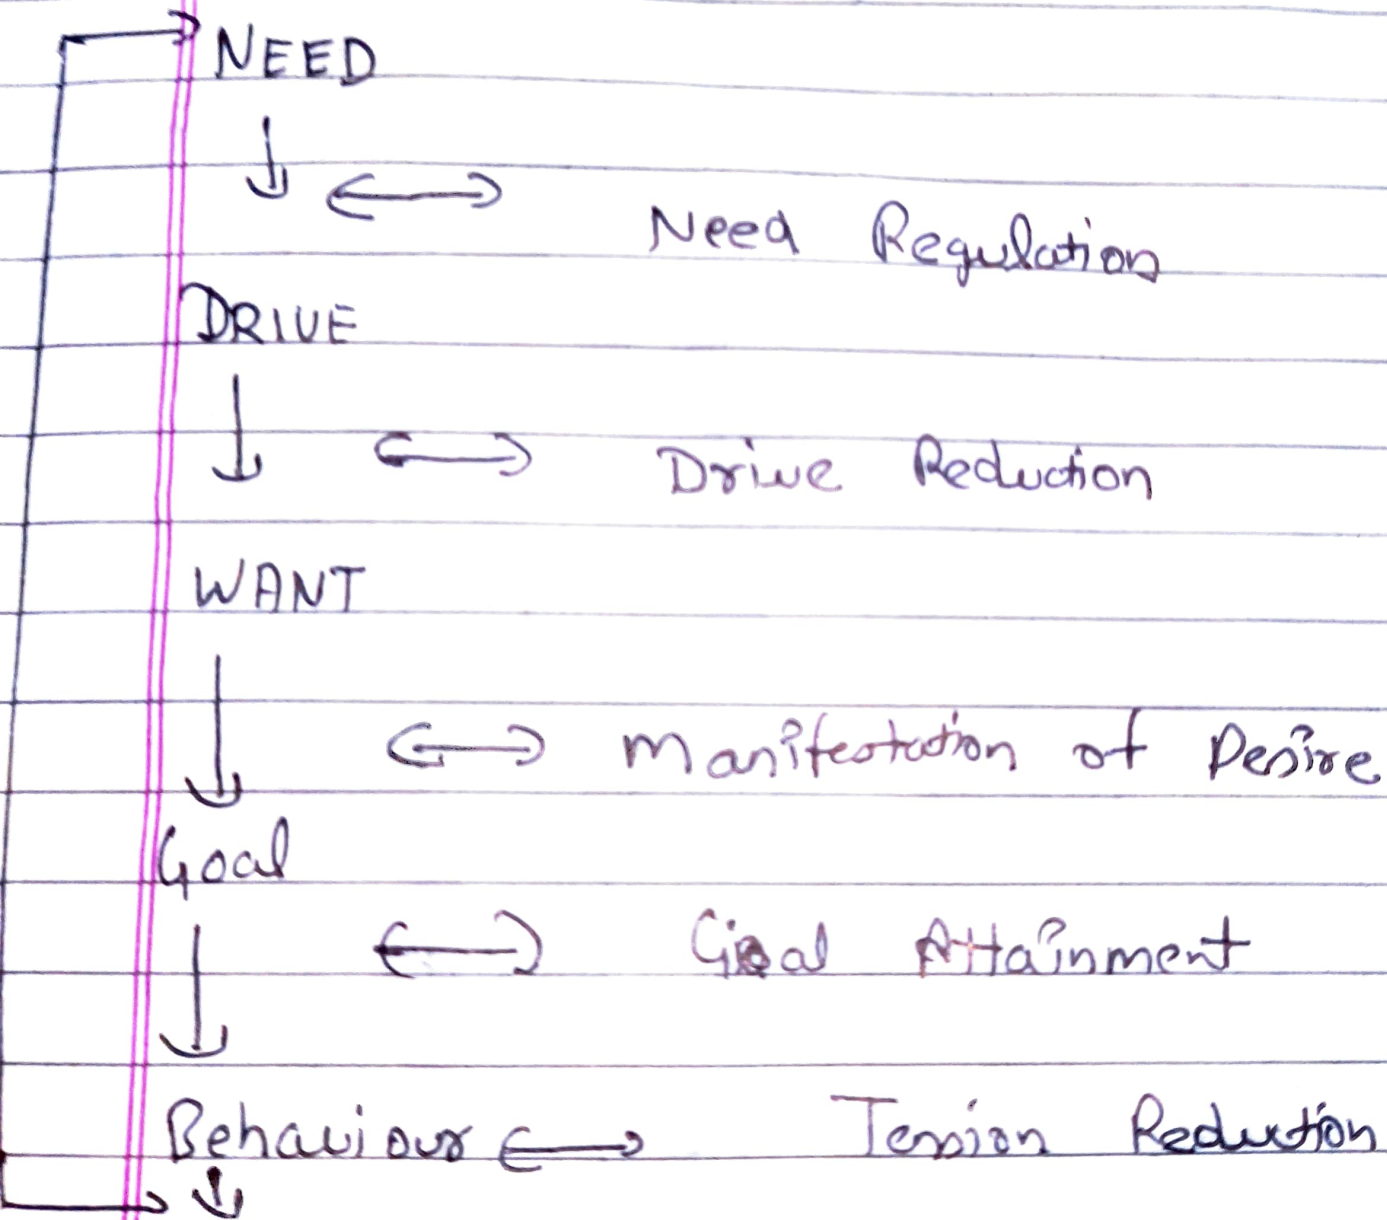 NEED
Need Regulation
DRIVE
Drive Reduction
WANT
Manifestation of Desire
Goal
Goal Attainment
Behaviour Tension Reduction